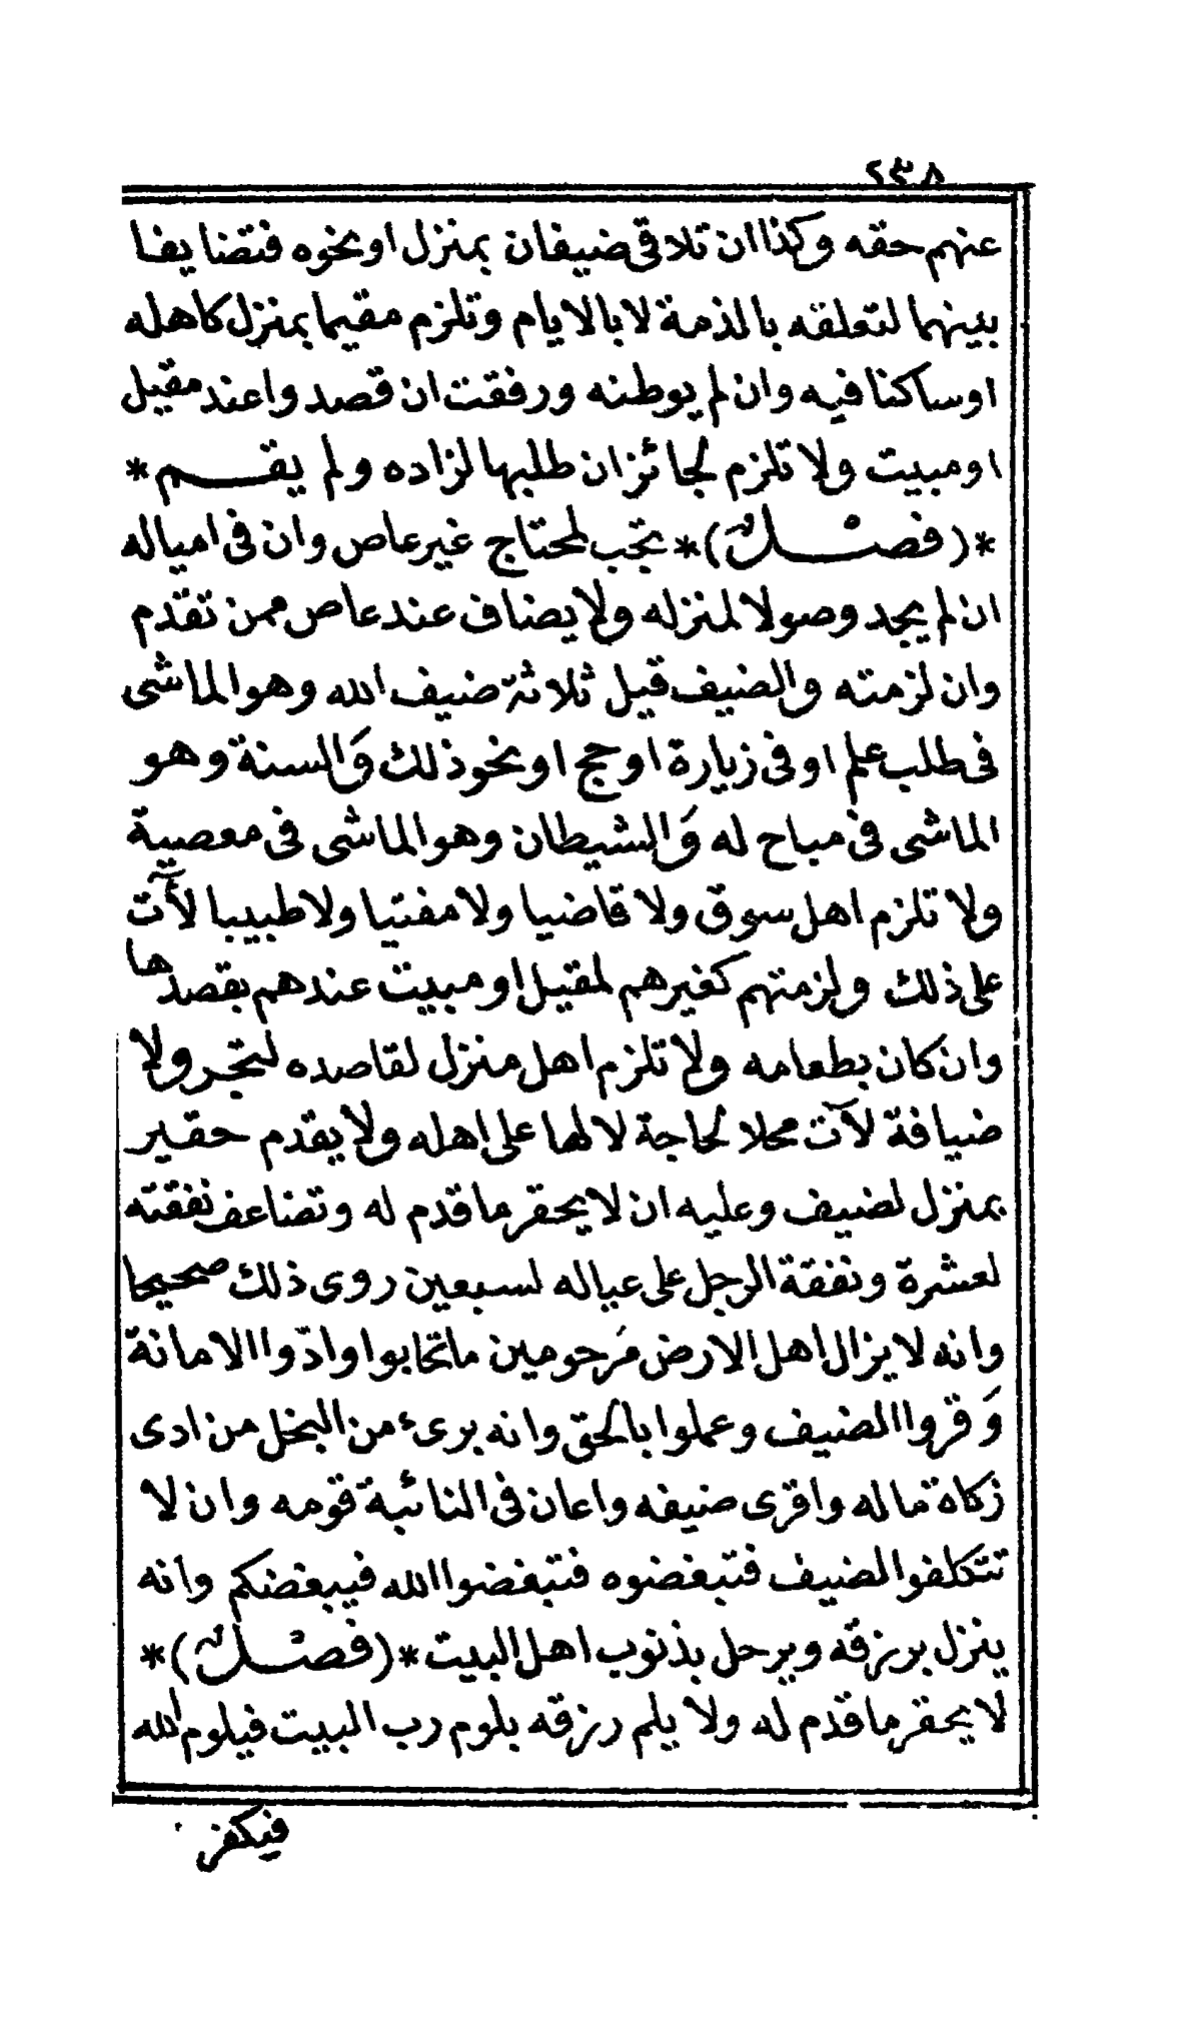 ٢٣٨
عنهم حقه وكذا ان تلاقى ضيفان بمنزل او نحوه فتضايفا
بينهما لتعلقه بالذمة لا بالايام وتلزم مقيما بمنزل كاهله
او ساكنا فيه وان لم يوطنه ورفقت ان قصدوا عند مقيل
او مبيت ولا تلزم لجائز ان طلبها لزاده ولم يقم *
*(فصل)* تجب لمحتاج غير عاص وان فى امياله
ان لم يجد وصولا لمنزله ولا يضاف عند عاص ممن تقدم
وان لزمته والضيف قيل ثلاثة ضيف الله وهو الماشى
فى طلب علم او فى زيارة او حج او نحو ذلك وَالسنة وهو
الماشى فى مباح له وَالشيطان وهو الماشى فى معصية
ولا تلزم اهل سوق ولا قاضيا ولا مفتيا ولا طبيبا لأت
على ذلك ولزمتهم كغيرهم لمقيل او مبيت عندهم بقصدها
وان كان بطعامه ولا تلزم اهل منزل لقاصده لتجر ولا
ضيافة لآت محلا لحاجة لا لها على اهله ولا يقدم حقير
بمنزل لضيف وعليه ان لا يحقر ما قدم له وتضاعف نفقته
لعشرة ونفقة الرجل على عياله لسبعين روى ذلك صحيحا
وانه لا يزال اهل الارض مَرحومين ما تحابوا وادّوا الامانة
وَقروا الضيف وعملوا بالحق وانه برىء من البخل من ادى
زكاة ماله واقرى ضيفه واعان فى النائبة قومه وان لا
تتكلفوا لضيف فتبغضوه فتبغضوا الله فيبغضكم وانه
ينزل برزقه ويرحل بذنوب اهل البيت *(فصل)*
لا يحقر ما قدم له ولا يلم رزقه بلوم رب البيت فيلوم الله
فيكفر